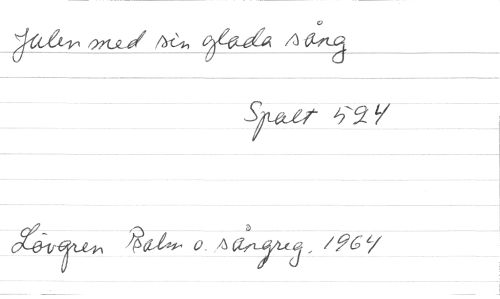 Julen med sin glada sång
Spalt 524
Lövgren Psalm o. sångreg. 1964